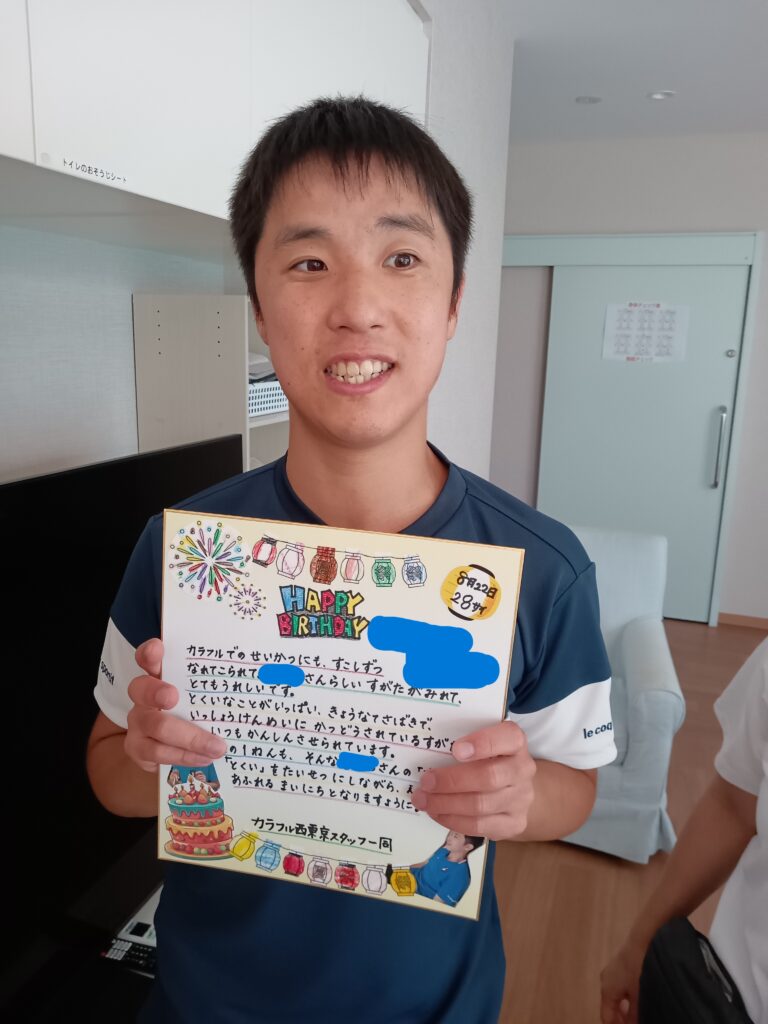 トイレのおそうじシート
8月22日
28才
HAPPY
BIRTHDAY
カラフルでの せいかつにも、すこしずつ
なれてこられて さんらしい すがたが みれて、
とてもうれしいです。
とくいなことがいっぱい、きょうなてさばきで、
いっしょうけんめいに かつどうされているすがた
いつも かんしんさせられています。
の1ねんも、そんな さんの
「とくい」をたいせつにしながら、
あふれる まいにちとなりますように。
カラフル西東京スタッフ一同
le coq